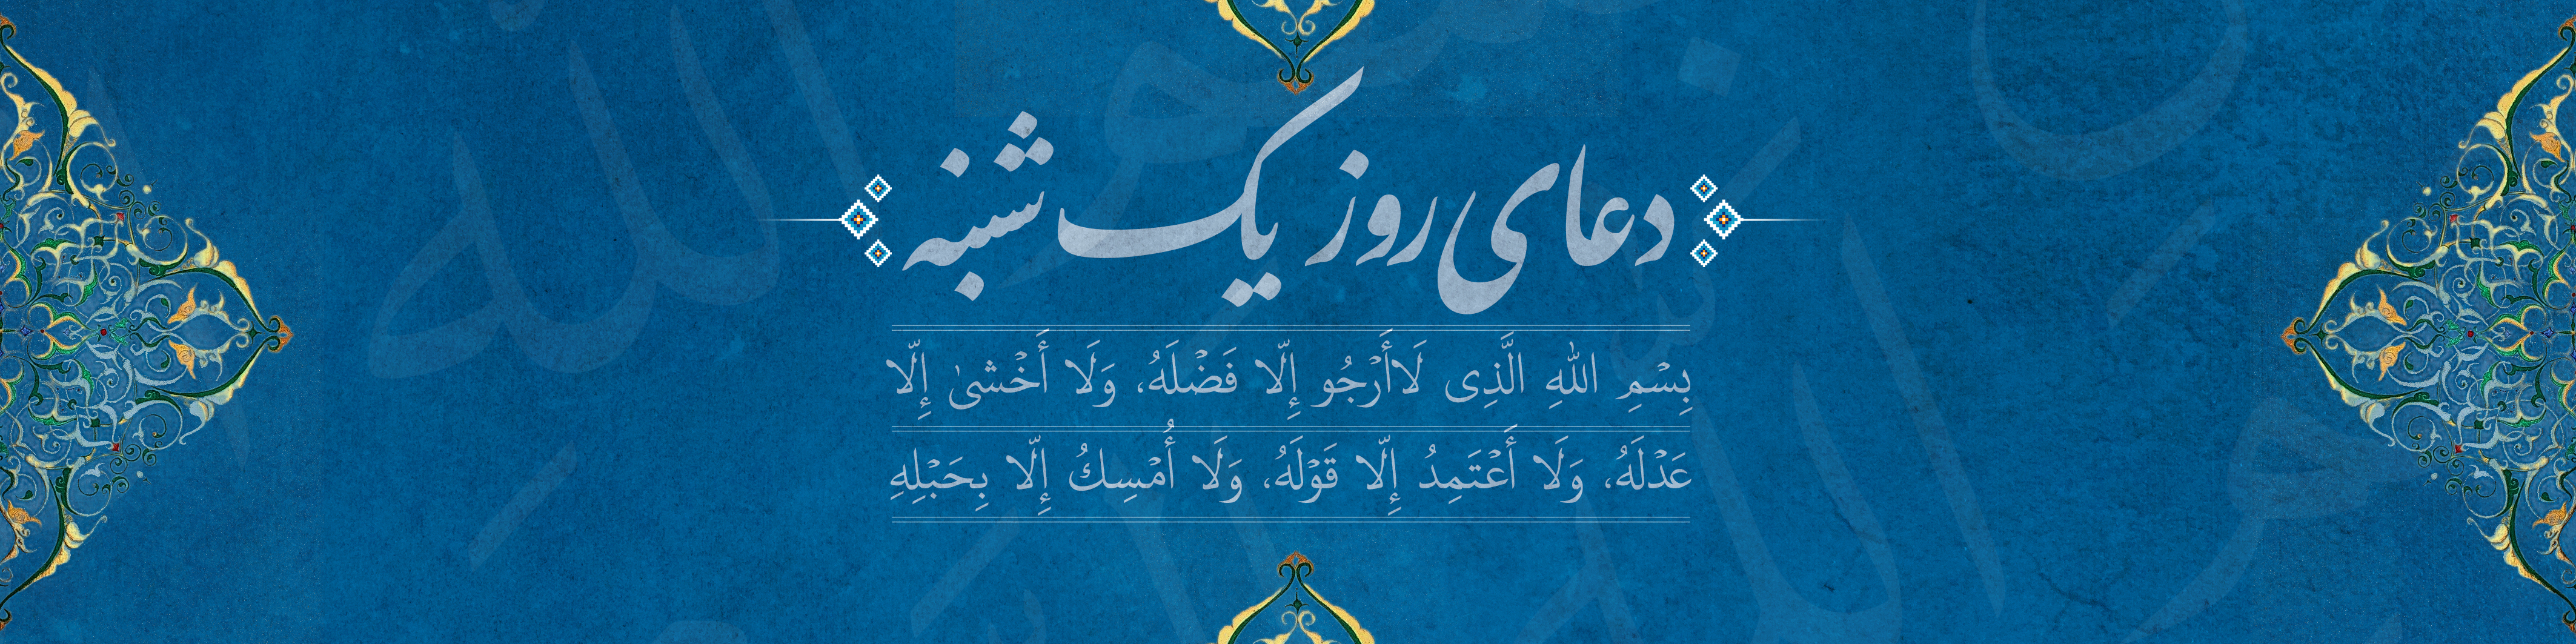 دعای روز یک شنبه
بِسْمِ اللهِ الَّذِی لَاأَرْجُو إِلّا فَضْلَهُ، وَلَا أَخْشیٰ إِلّا
عَدْلَهُ، وَلَا أَعْتَمِدُ إِلّا قَوْلَهُ، وَلَا أُمْسِكُ إِلّا بِحَبْلِهِ